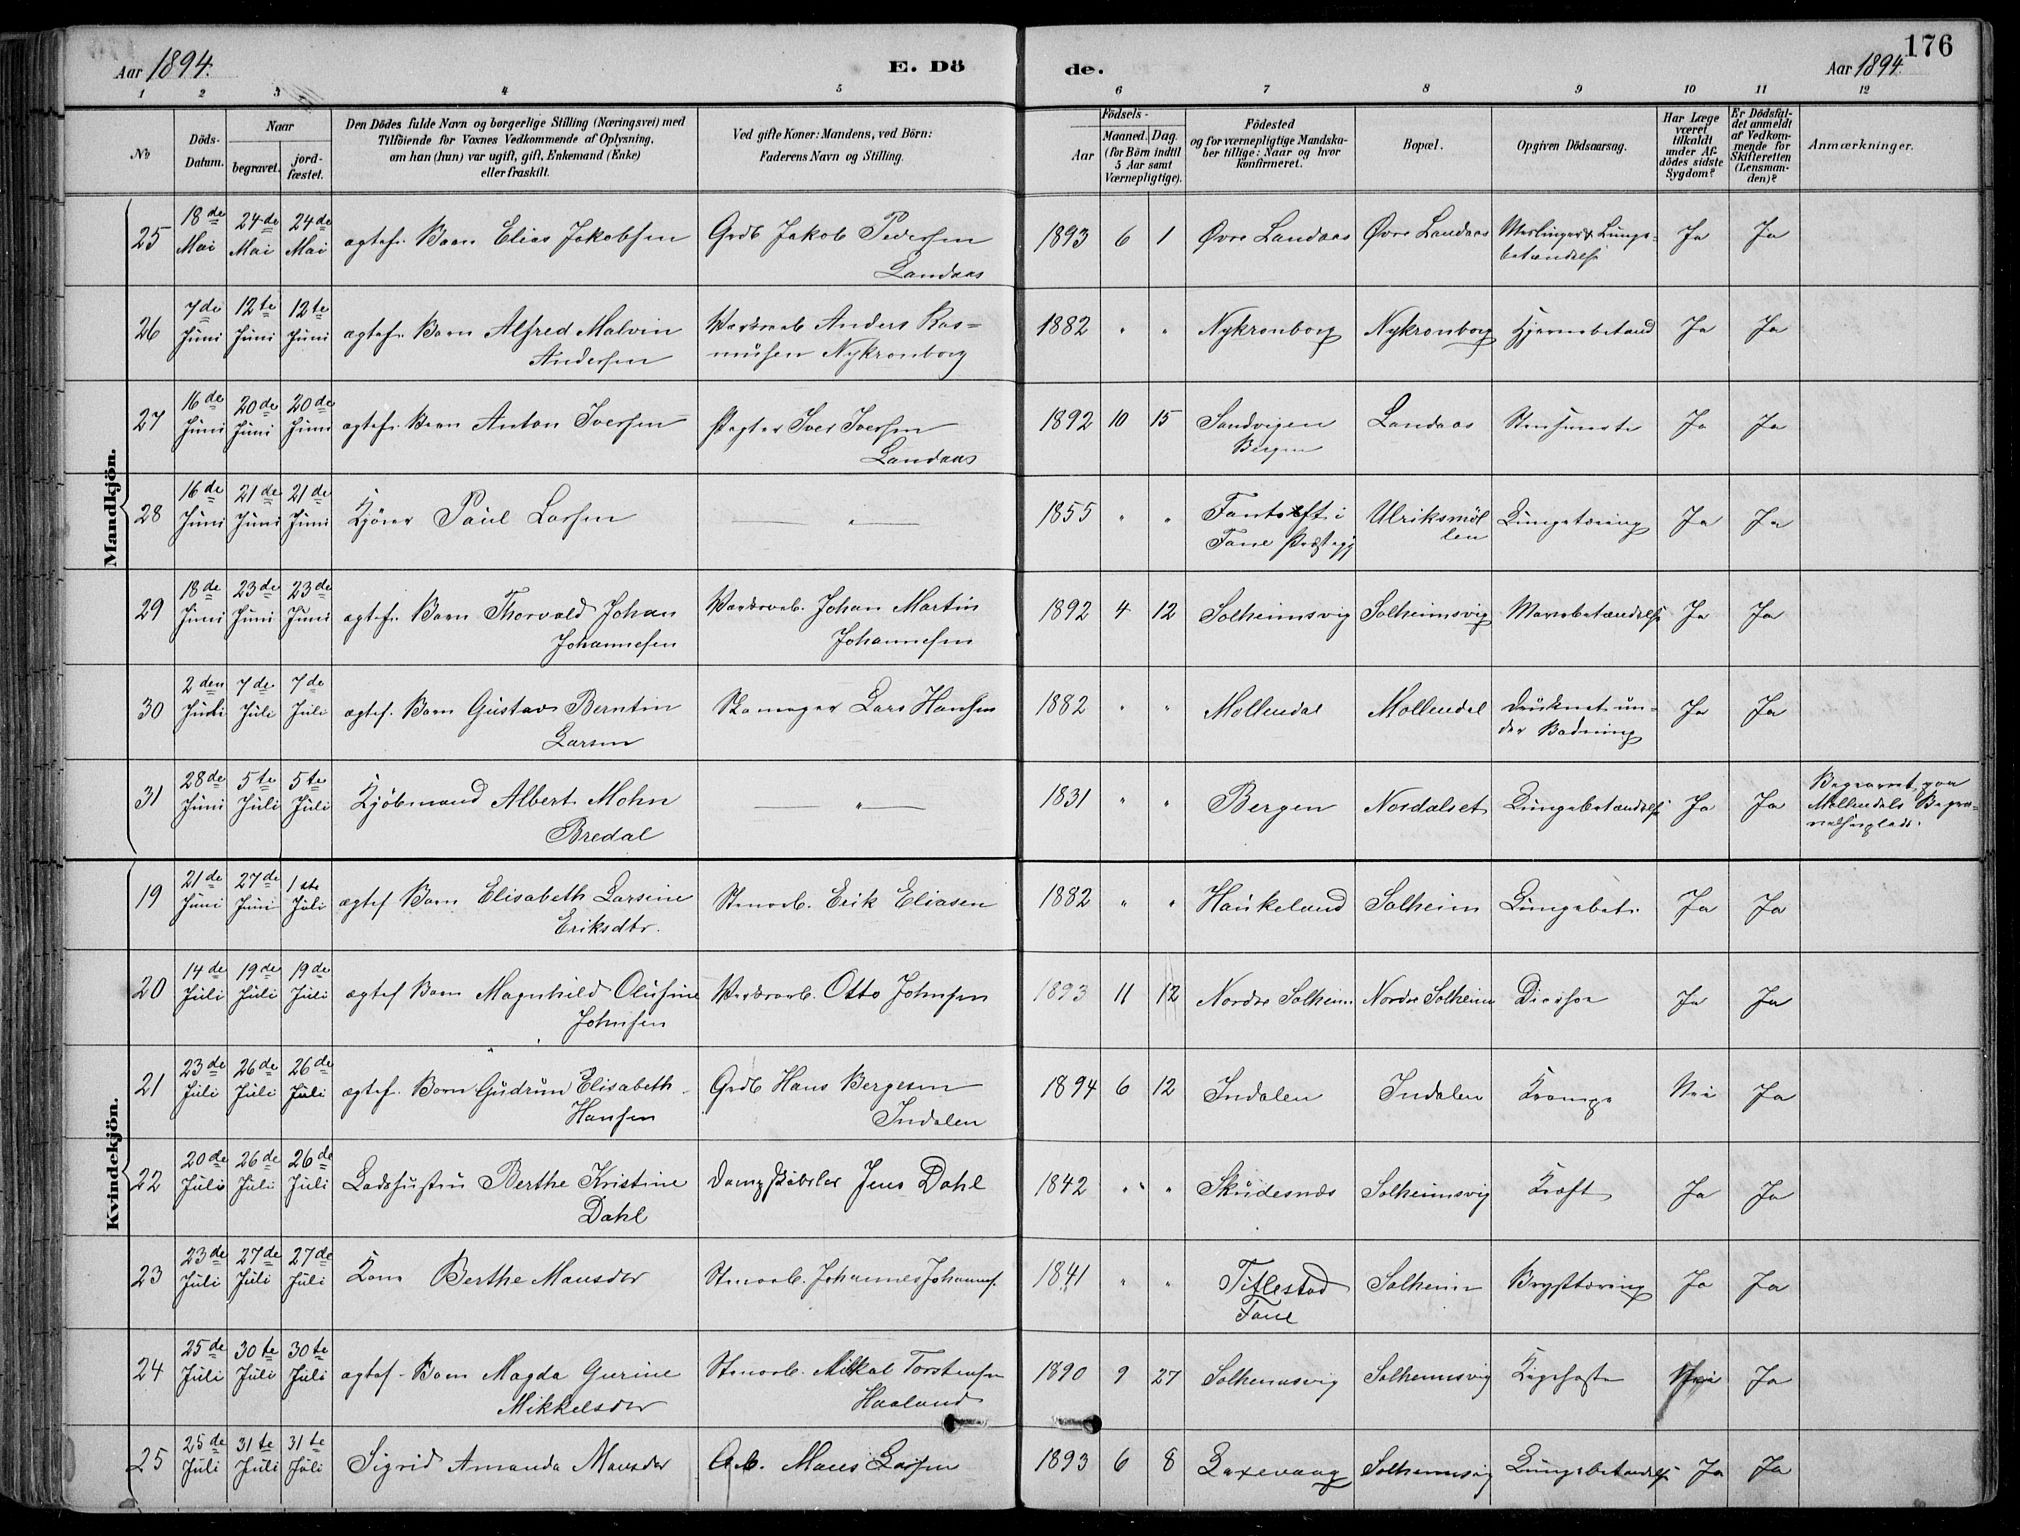 Aar 1894.
E. Dö
de.
Aar 1894.
176
1 2 3 4 5 6 7 8 9 10 11 12
No
Döds-
Datum.
Naar
begravet.
jord-
fæstet.
Den Dödes fulde Navn og borgerlige Stilling (Næringsvei) med
Tilföiende for Voxnes Vedkommende af Oplysning,
om han (hun) var ugift, gift, Enkemand (Enke)
eller fraskilt.
Ved gifte Koner: Mandens, ved Börn:
Faderens Navn og Stilling.
Födsels-
Aar
Maaned. Dag.
(for Börn indtil
5 Aar samt
Værnepligtige).
Födested
og for værnepligtige Mandska-
ber tillige: Naar og hvor
konfirmeret.
Bopæl.
Opgiven Dödsaarsag.
Har Læge
været
tilkaldt
under Af-
dödes sidste
Sygdom?
Er Dödsfal-
det anmeldt
af Vedkom-
mende for
Skifteretten
(Lensman-
den)?
Anmærkninger.
Mandkjön.
25 18de Mai 24de Mai 24de Mai ægtef. Barn Elias Jakobsen Grdb Jakob Pedersen
Landaas
1893 6 1 Øvre Landaas Øvre Landaas Meslinger & Lunge-
betændelse Ja Ja
26 7de Juni 12te Juni 12te Juni ægtef. Barn Alfred Malvin
Andersen
Værksarb Anders Ras-
musen Nykronborg
1882 " " Nykronborg Nykronborg Hjernebetænd Ja Ja
27 16de Juni 20de Juni 20de Juni ægtef. Barn Anton Iversen Pagter Iver Iversen
Landaas
1892 10 15 Sandvigen
Bergen
Landaas Ja Ja
28 16de Juni 21de Juni 21de Juni Kjører Paul Larsen "
1855 " " Fantoft i
Fane Præstegj
Ulriksmøl
len
Lungetæring Ja Ja
29 18de Juni 23de Juni 23de Juni ægtef. Barn Thorvald Johan
Johannesen
Værksarb. Johan Martin
Johannesen
1892 4 12 Solheimsvig Solheimsvig Mavebetændelse Ja Ja
30 2den Juli 7de Juli 7de Juli ægtef. Barn Gustav Berntin
Larsen
Skomager Lars Hansen
1882 " " Møllendal Møllendal Druknet un-
der Badning Ja Ja
31 28de Juni 5te Juli 5te Juli Kjøbmand Albert Mohn
Bredal
"
1831 " " Bergen Nordalset Lungebetændelse Ja Ja
Begravet paa
Møllendals Begra-
velsesplads.
Kvindekjön.
19 21de Juni 27de Juni 1ste Juli ægtef Barn Elisabeth Larsine
Eriksdtr.
Stenarb. Erik Eliasen
1882 " " Haukeland Solheim Lungebet. Ja Ja
20 14de Juli 19de Juli 19de Juli ægtef Barn Magnhild Olufine
Johnsen
Værksarb. Otto Johnsen
1893 11 12 Nordre Solheim Nordre Solheim Diarhoe Ja Ja
21 23de Juli 26de Juli 26de Juli ægtef. Barn Gudrun Elisabeth
Hansen
Grdb Hans Bergesen
Indalen
1894 6 12 Indalen Indalen Krampe Nei Ja
22 20de Juli 26de Juli 26de Juli Berthe Kristine
Dahl
Jens Dahl
1842 " " Skudesnæs Solheimsvig Kræft Ja Ja
23 23de Juli 27de Juli 27de Juli Kone Berthe Mansdtr Stenarb. Johannes Johannes.
1841 " " Titlestad
Fane
Solheim Brysttæring Ja Ja
24 25de Juli 30te Juli 30te Juli ægtef. Barn Magda Gurine
Mikkelsdtr
Stenarb. Mikkal Torstensen
Haaland
1890 9 27 Solheimsvig Solheimsvig Kighoste Nei Ja
25 25de Juli 31te Juli 31te Juli Sigrid Amanda Mansdtr Arb. Mans Larsen
1893 6 8 Laxevaag Solheimsvig Lungebetændelse Ja Ja